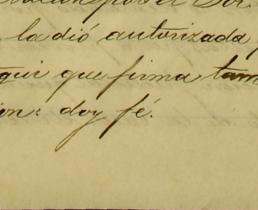 por el Sr.
la dió autorizada
que firma tam
ion: doy fé.